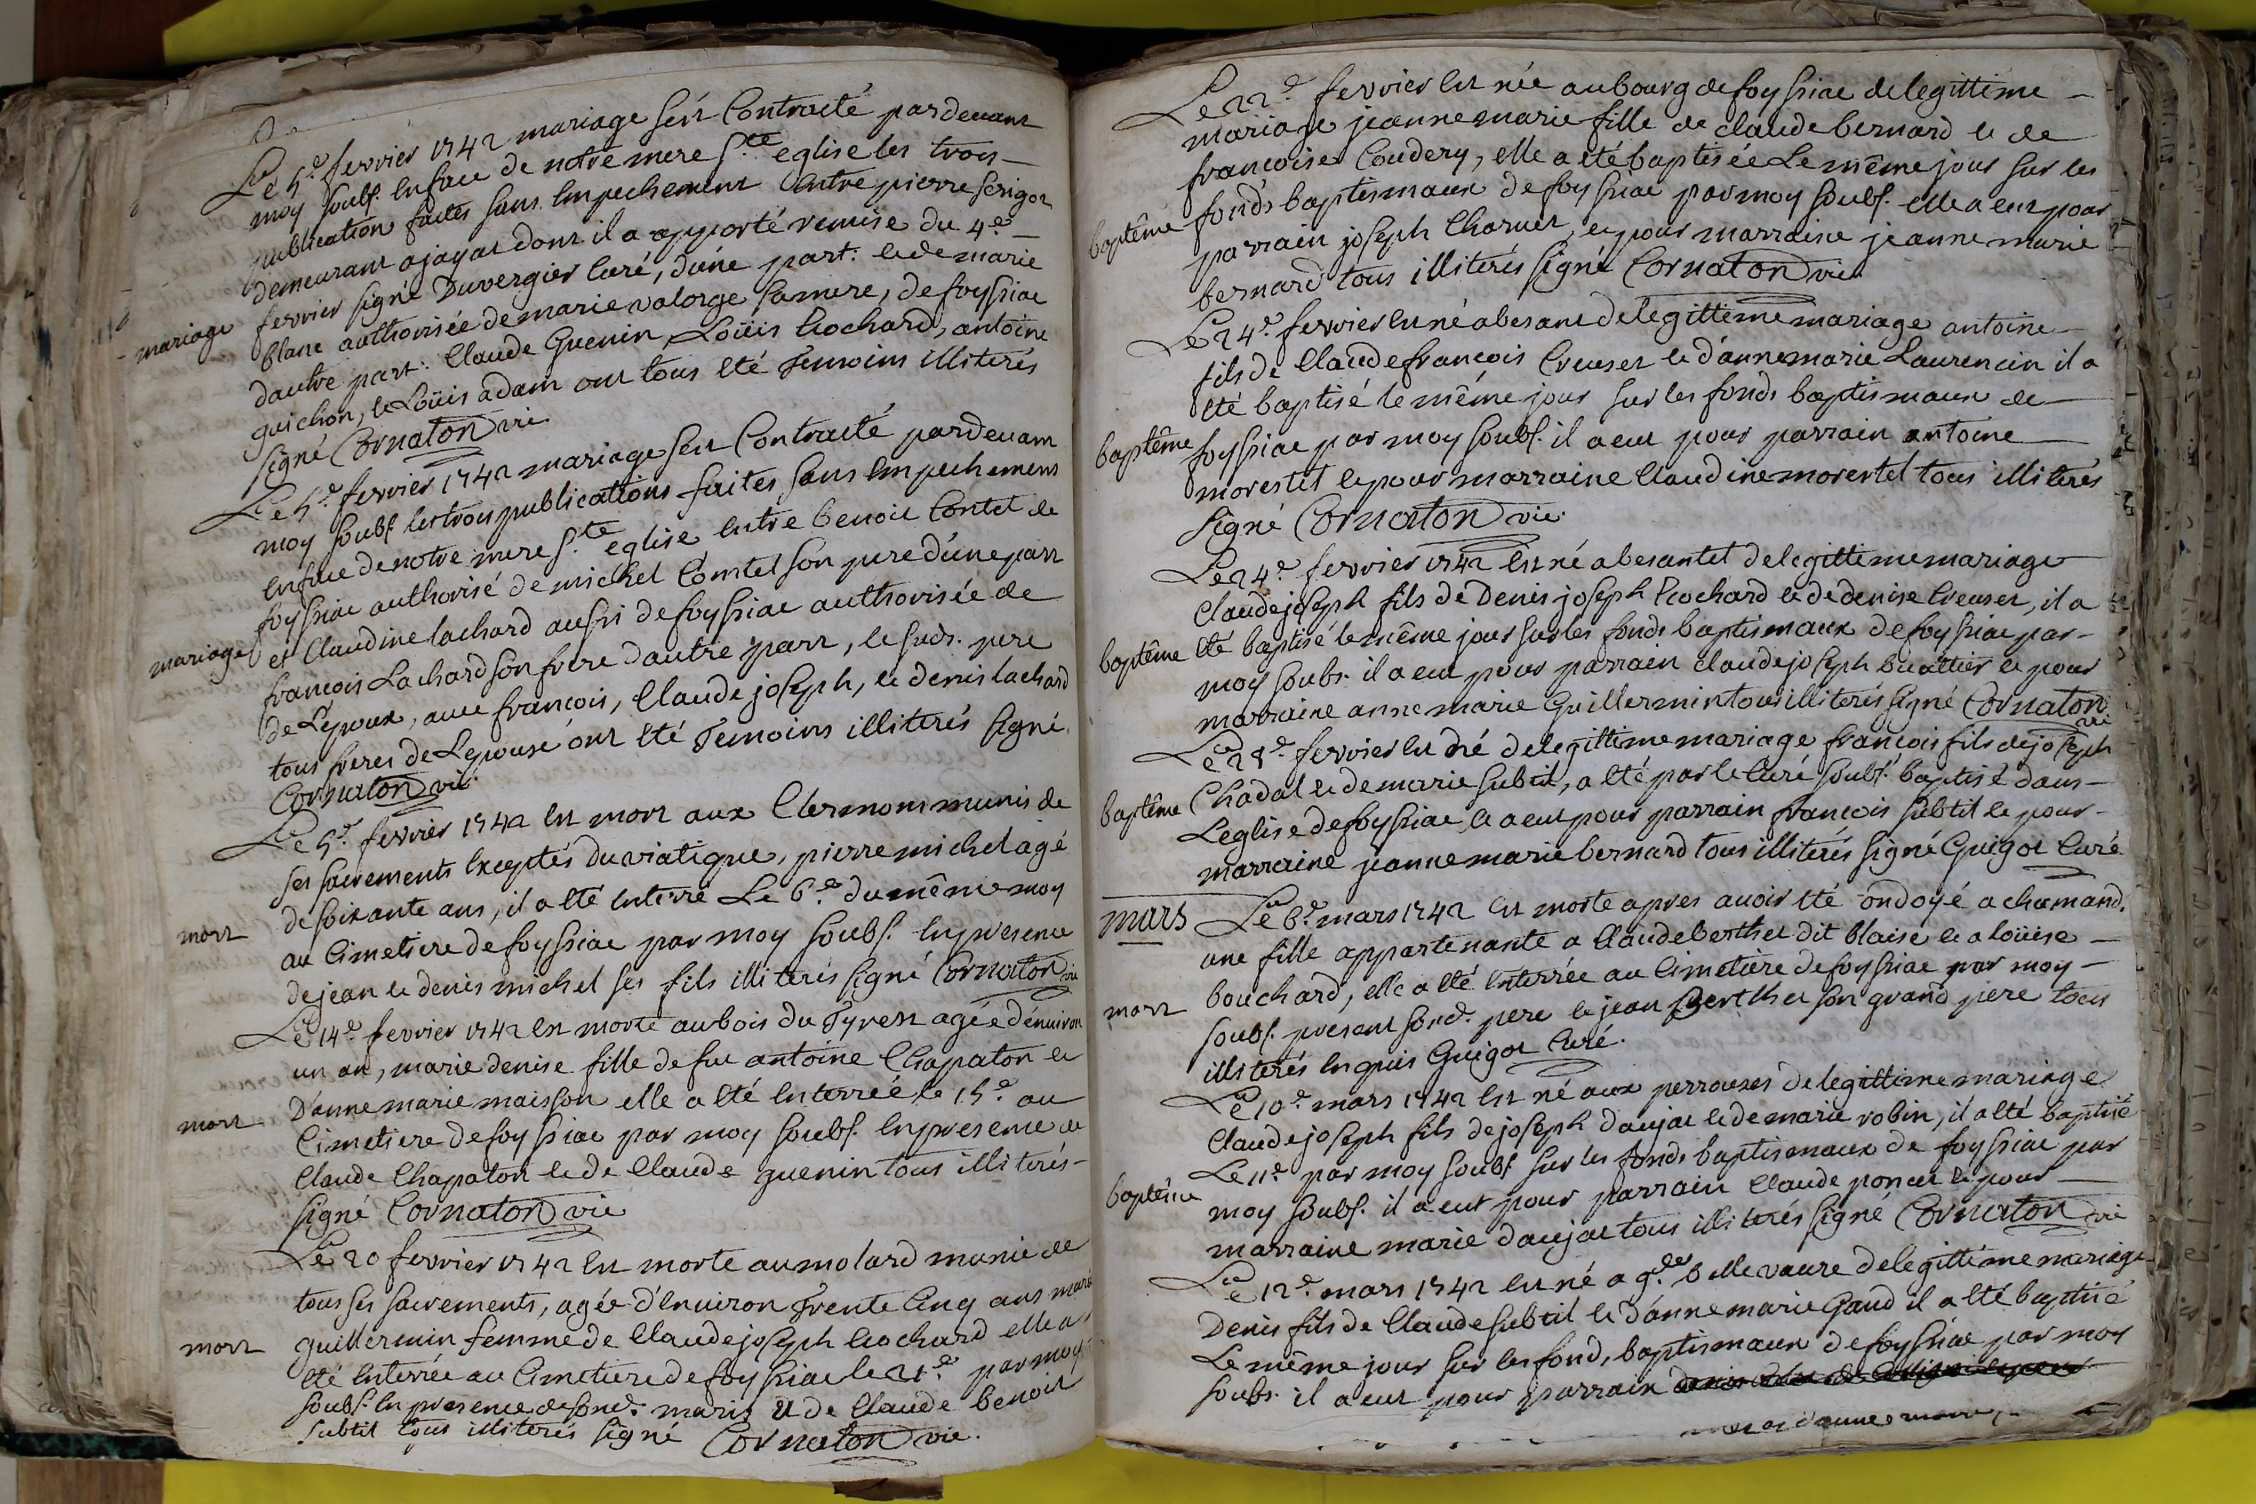 Le 5.e fevrier 1742 mariage s'est Contracté pardevant
moy soubs. en face de notre mere S.te eglise les trois
publication faites sans Empechement Entre pierre
demeurant a jayat dont il a apporté remise du 4.e
fevrier signé Duvergier Curé, d'une part. et de marie
mariage
blanc authorisée de marie valorge sa mere, de foyssiac
dautre part. Claude Guenin, Loüis Cochard, antoine
guichon, et Loüis adam ont tous Eté Temoins illiterés
signé Cornaton vic.
Le 5.e fevrier 1742 mariage s'est Contracté pardevant
moy soubs. les trois publications faites sans Empechement
en face de notre mere S.te eglise Entre benoit Contet de
foyssiac authorisé de michel Comtet son pere d'une part
et Claudine lachard aussi de foyssiac authorisée de
mariage
francois Lachard son frere dautre part, le susd. pere
de L'epoux, avec francois, Claude joseph, et denis lachard
tous freres de Lepouse ont Eté Temoins illiterés signé
Cornaton vic.
Le 5.e fevrier 1742 Est mort aux Clermons munis de
ses sacrements Exceptés du viatique, pierre michel agé
de soixante ans, il a Eté Enterré Le 6.e du même moy
mort
au Cimetiere de foyssiac par moy soubs. En presence
de jean et denis michel ses fils illiterés signé Cornaton vic
Le 14.e fevrier 1742 Est morte au bois du Tyret agée d'environ
un an, marie denise fille de feu antoine Chapaton et
mort
D'anne marie maisson elle a Eté Enterrée le 15.e au
Cimetiere de foyssiac par moy soubs. En presence de
Claude Chapaton et de Claude guenin tous illiterés
signé Cornaton vic
Le 20 fevrier 1742 Est morte au molard munie de
tous ses sacrements, agée d'Environ Trente Cinq ans marie
mort
guillermin femme de Claude joseph Cochard elle a
Eté Enterrée au Cimetiere de foyssiac le 21.e par moy
soubs. En presence de sond. mary et de Claude benoit
subtil tous illiterés signé Cornaton vic.
Le 22.e fevrier Est née au bourg de foyssiac de legittime
mariage jeanne marie fille de claude bernard et de
francoise Coudery, elle a eté baptisée Le même jour sur les
baptême
fonds baptismaux de foyssiac par moy soubs. elle a eut pour
parrain joseph Charnet, et pour marraine jeanne marie
bernard tous illiterés signé Cornaton vic.
Le 24.e fevrier Est né a besant de legittime mariage antoine
fils de Claude francois Creuset et d'anne marie Laurencin il a
Eté baptisé le même jour sur les fonds baptismaux de
baptême
foyssiac par moy soubs. il a eut pour parrain antoine
morestel et pour marraine Claudine morestel tous illiterés
signé Cornaton vic.
Le 24.e fevrier 1742 Est né a besantet de legittime mariage
Claude joseph fils de Denis joseph Cochard et de denise Creuset, il a
baptême
Eté baptisé le même jour sur les fonds baptismaux de foyssiac par
moy soubs. il a eut pour parrain claude joseph buattier et pour
marraine anne marie Guillermin tous illiterés signé Cornaton
vic
Le 28.e fevrier Est né de legittime mariage francois fils de joseph
Chadal et de marie subtil, a Eté par le Curé soubs. baptisé dans
baptême
L'eglise de foyssiac et a eut pour parrain francois subtil et pour
marraine jeanne marie bernard tous illiterés signé Guigot Curé
mars
Le 6.e mars 1742 Est morte apres avoir Eté ondoyé a chamand.
une fille appartenante a Claude berthet dit blaise et a Loüise
bouchard, elle a Eté Enterrée au Cimetiere de foyssiac par moy
mort
soubs. present sond. pere et jean Berthet son grand pere tous
illiterés Enquis Guigot Curé.
Le 10.e mars 1742 Est né aux perrouses de legittime mariage
Claude joseph fils de joseph daujat et de marie robin, il a Eté baptisé
Le 11.e par moy soubs. sur les fonds baptismaux de foyssiac par
baptême
moy soubs. il a eut pour parrain Claude poncet et pour
marraine marie daujat tous illiterés signé Cornaton vic
Le 12.e mars 1742 Est né a g.de Bellevavre de legittime mariage
Denis fils de Claude subtil et d'anne marie Gaud il a Eté baptisé
Le même jour sur les fonds baptismaux de foyssiac par moy
soubs. il a eut pour parrain